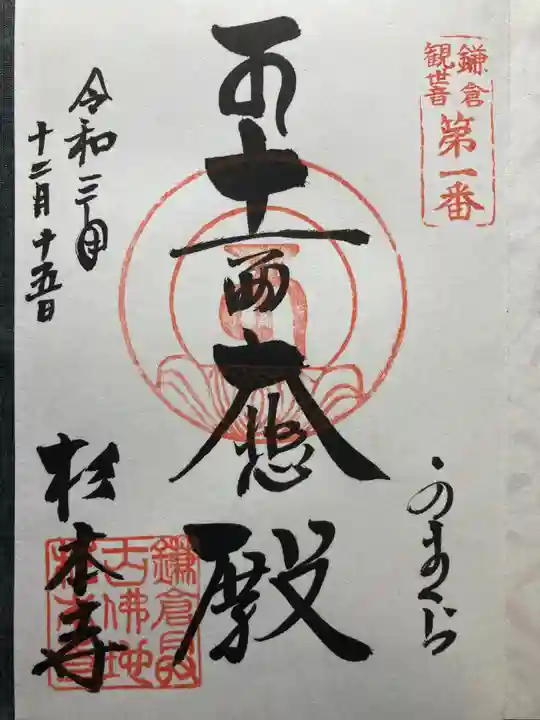 鎌倉
観世音
第一番
かまくら
十一面大悲殿
令和三年
十二月十五日
杉本寺
鎌倉最
古佛地